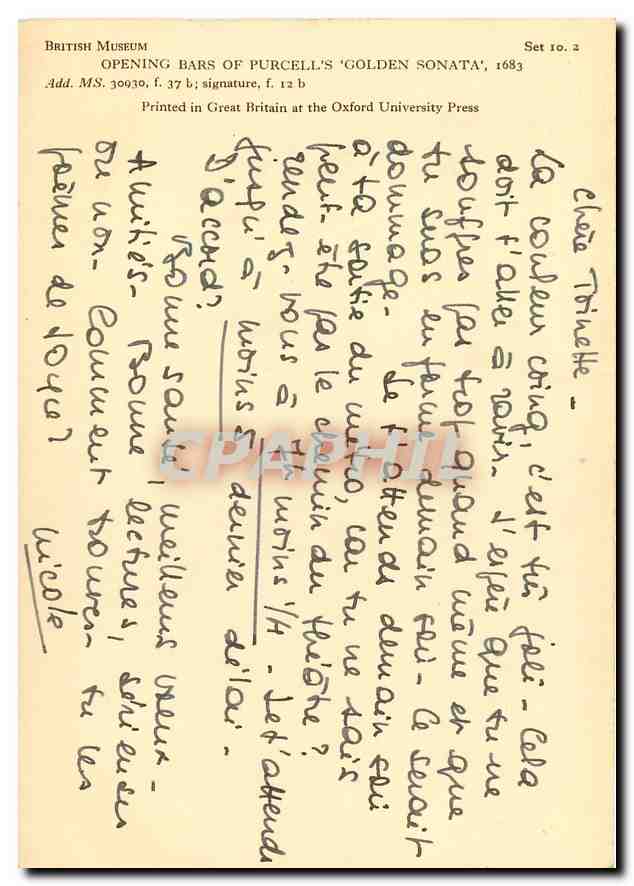 BRITISH MUSEUM
Set 10. 2
OPENING BARS OF PURCELL'S 'GOLDEN SONATA', 1683
Add. MS. 30930, f. 37 b; signature, f. 12 b
Printed in Great Britain at the Oxford University Press
Chère Toinette -
La couleur coing, c'est très joli - Cela
doit t'aller à ravir - J'espère que tu ne
souffres pas trop quand même et que
tu seras en forme demain soir - Ce serait
dommage - Je t'attends demain soir
à ta sortie du métro, car tu ne sais
peut-être pas le chemin du théâtre?
rendez-vous à 7h moins 1/4 - Je t'attends
jusqu'à moins 5 dernier délai -
D'accord?
Bonne santé, meilleurs vœux -
Amitiés - Bonne lectures, sérieuses
ou non - Comment trouves-tu les
poèmes de Joyce?
Nicole
CPAPHIL